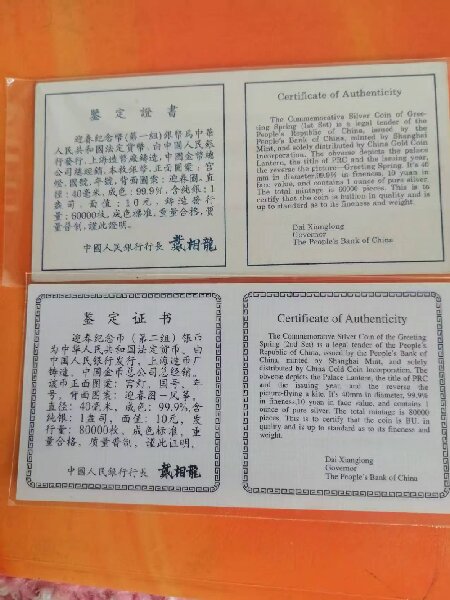 鑒定證書
迎春紀念幣(第一組)銀幣爲中華
人民共和國法定貨幣,由中國人民銀
行發行,上海造幣廠鑄造,中國金幣總
公司總經銷。本枚銀幣,正面圖案:宮
燈、國號、年號,背面圖案:迎春圖,直
徑:40毫米,成色:99.9%,含純銀:1
盎司,面值:10元,鑄造發行
量:60000枚,成色標準,重量合格,質
量普制,謹此證明。
中國人民銀行行長 戴相龍
Certificate of Authenticity
The Commemorative Silver Coin of Gree-
ting Spring (1st Set) is a legal tender of the
People's Republic of China, issued by the
People's Bank of China, minted by Shanghai
Mint, and solely distributed by China Gold Coin
Incorporation. The obverse depicts the palace
Lantern, the title of PRC and the issuing year,
the reverse the picture—Greeting Spring. It's 40
mm in diameter, 99.9% in fineness, 10 yuan in
face value, and contains 1 ounce of pure silver.
The total mintage is 60000 pieces. This is to
certify that the coin is bullion in quality and is
up to standard as to its fineness and weight.
Dai Xianglong
Governor
The People's Bank of China
鉴定证书
迎春纪念币(第二组)银币
为中华人民共和国法定货币,由
中国人民银行发行,上海造币厂
铸造,中国金币总公司总经销。
该币正面图案:宫灯、国号、年
号,背面图案:迎春图—风筝,
直径:40毫米,成色:99.9%,含
纯银:1盎司,面值:10元,发
行量:80000枚,成色标准,重
量合格,质量普制,谨此证明。
中國人民銀行行長 戴相龍
Certificate of Authenticity
The Commemorative Silver Coin of the Greeting
Spring (2nd Set) is a legal tender of the People's
Republic of China, issued by the People's Bank of
China, minted by Shanghai Mint, and solely
distributed by China Gold Coin Incorporation. The
obverse depicts the Palace Lantern, the title of PRC
and the issuing year, and the reverse the
picture-flying a kite. It's 40mm in diameter, 99.9%
in fineness, 10 yuan in face value, and contains 1
ounce of pure silver. The total mintage is 80000
pieces. This is to certify that the coin is BU. in
quality and is up to standard as to its fineness and
weight.
Dai Xianglong
Governor
The People's Bank of China